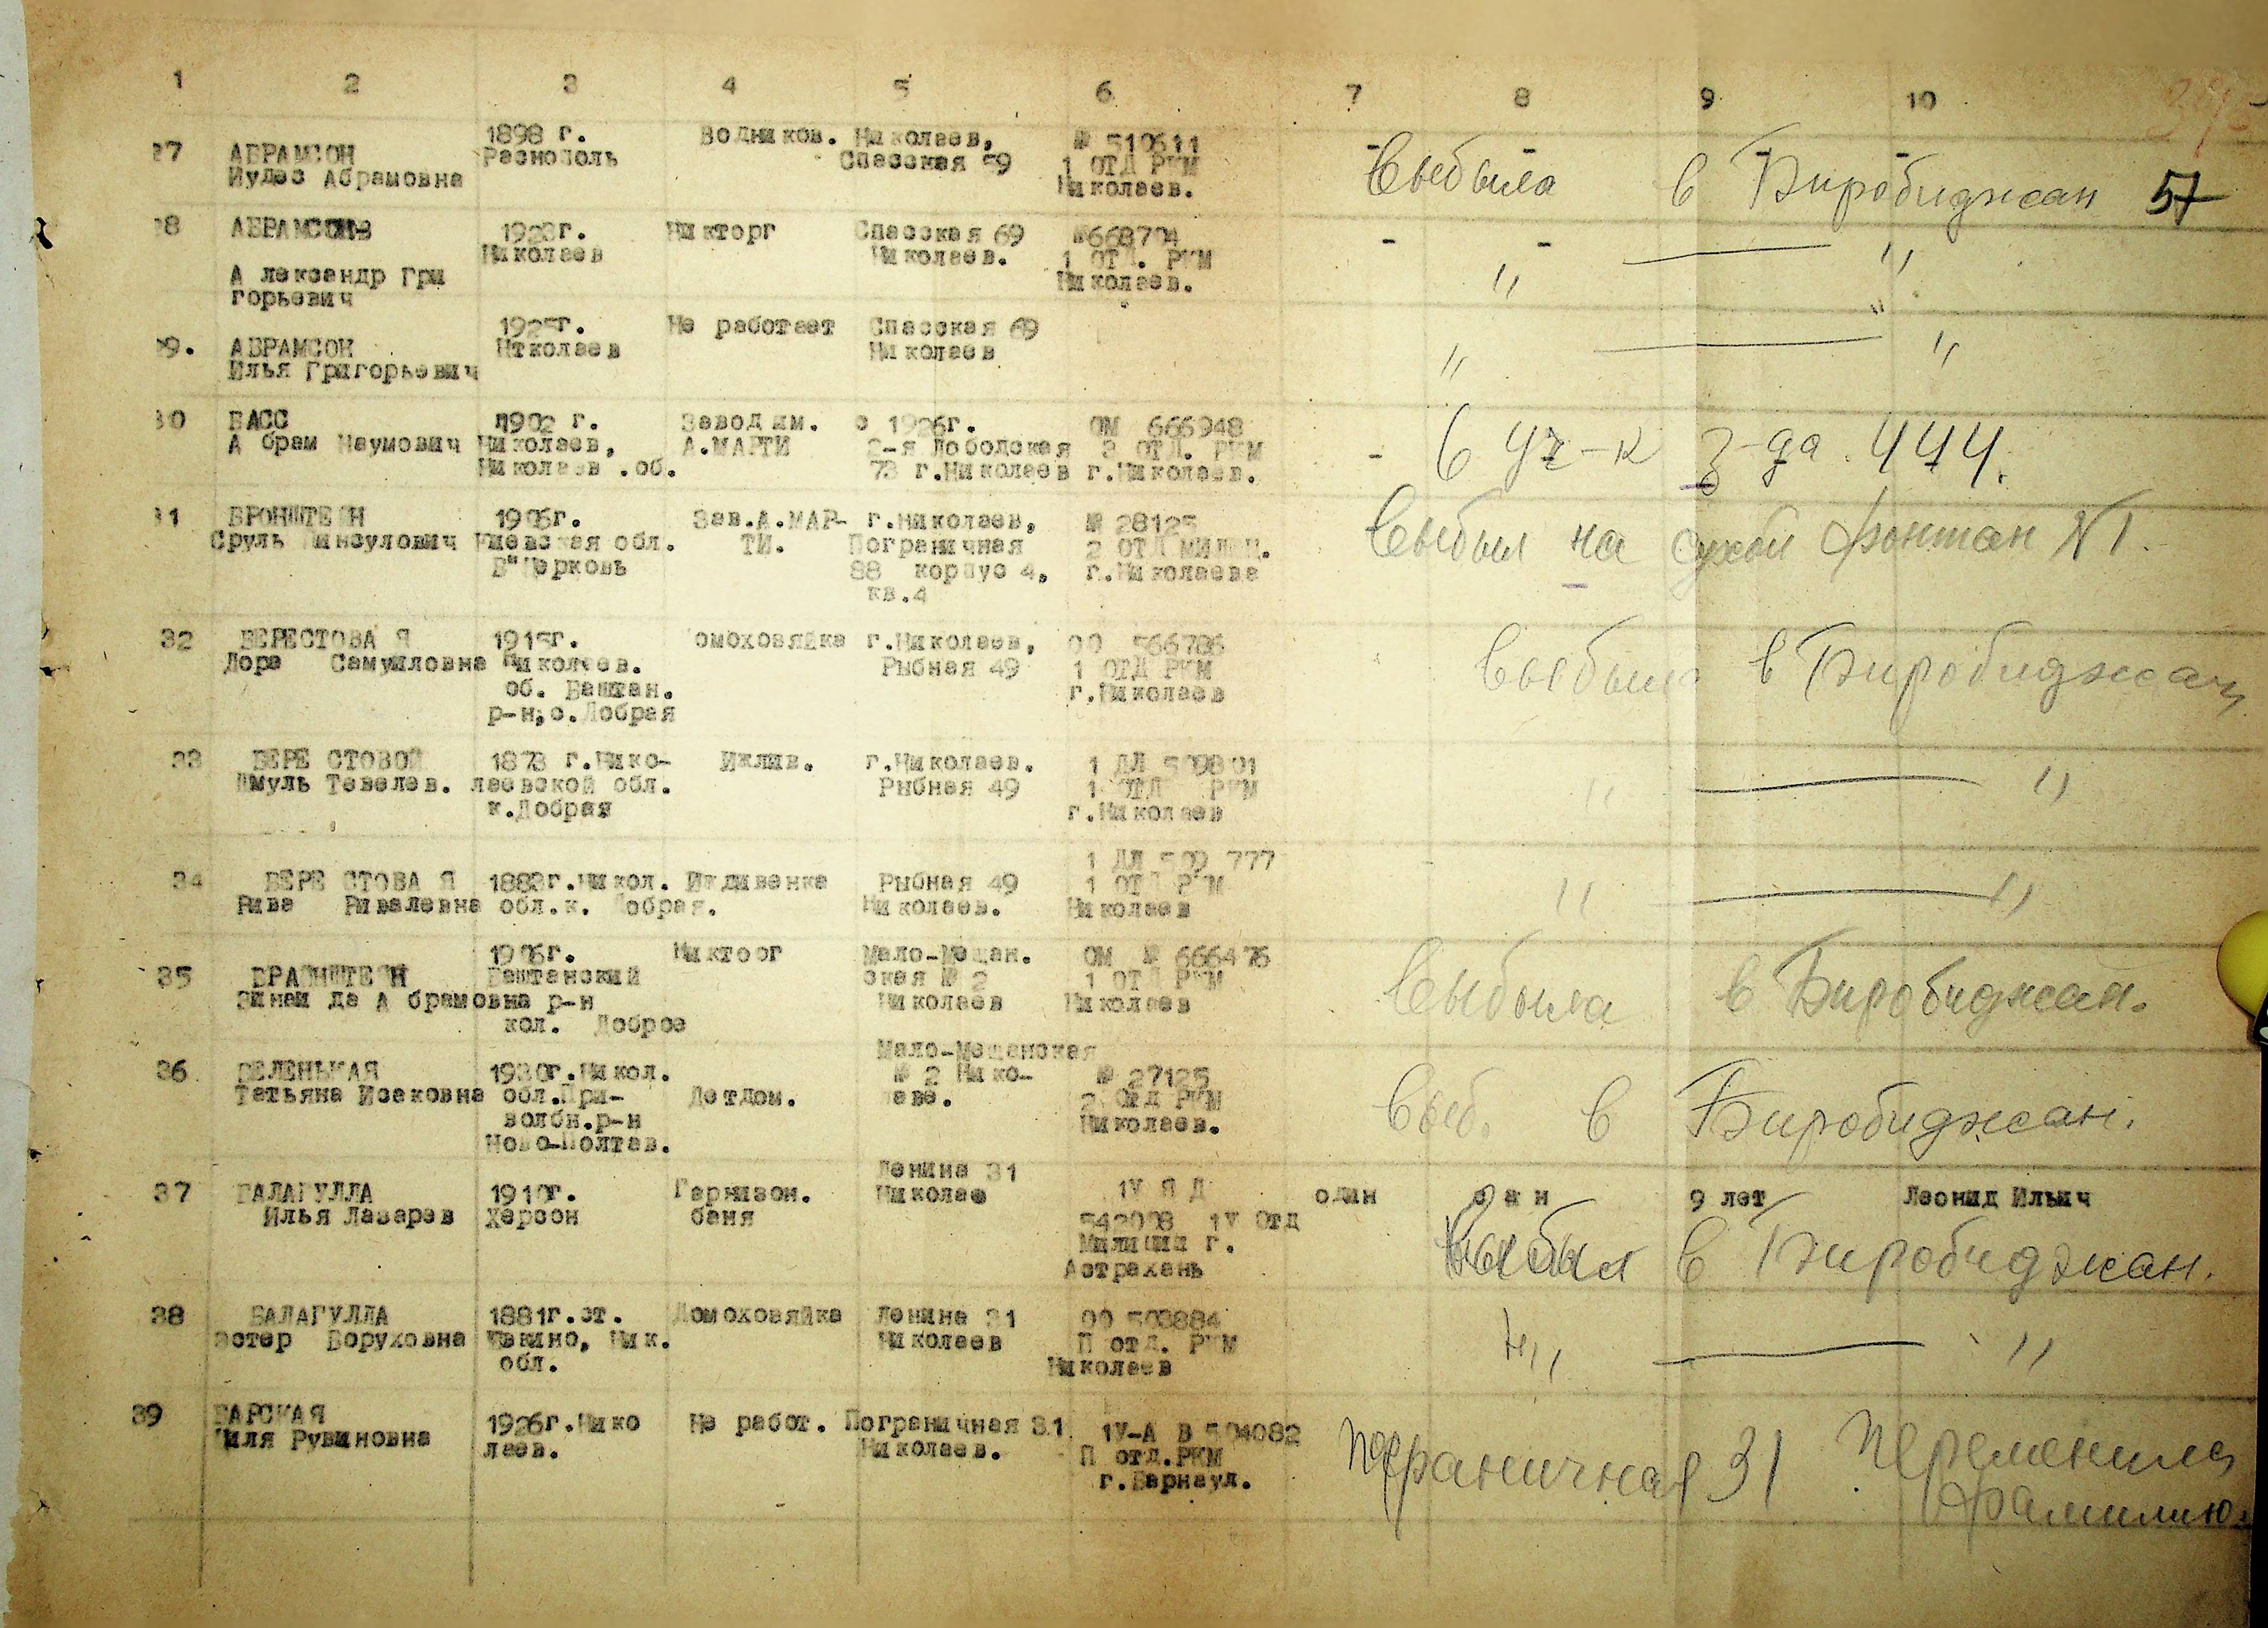 1 2 3 4 5 6 7 8 9 10
27 АБРАМСОН Иудес Абрамовна
1898 г.
Водников. Николаев, Спасская 69
№ 510611 1 ОТД РКМ Николаев.
- - - -
Выбыла в Биробиджан 57
28 АБРАМСОН
Александр Гри
горьевич
Николаев
Никторг
Спасская 69 Николаев.
№668704 1 ОТД. РКМ Николаев.
- -
" "
29. АБРАМСОН
Илья Григорьевич
1925г.
Нтколаев
Не работает
Спасская 69
Николаев
" "
30 БАСС
Абрам Наумович
1902 г.
Николаев,
Николаев.об.
Завод им.
А.МАРТИ
с 1926г.
2-я Лободская
73 г.Николаев
ОМ 666948
2 ОТД. РКМ
г.Николаев.
-
6 уч-к з-да 444.
31 БРОНШТЕЙН
Сруль
1906г.
Киевская обл.
Б"Церковь
Зав.А.МАР-
ТИ.
г.Николаев,
Пограничная
88 корпус 4,
кв.4
№ 28125
2 ОТД милиц.
г.Николаева
Выбыл на сухой фонтан №1.
32 БЕРЕСТОВАЯ
Дора Самуиловна
1915г.
Николаев.
об. Баштан.
р-н,с.Добрая
омохозяйка
г.Николаев,
Рыбная 49
566786
1 ОТД РКМ
г.Николаев
Выбыла в Биробиджан
33 БЕРЕСТОВОЙ
Шмуль Тевелев.
1873 г.Нико-
лаевской обл.
к.Добрая
Иждив.
г.Николаев.
Рыбная 49
1 ДЛ 509801
1 ОТД РКМ
г.Николаев
" "
34 БЕРЕСТОВАЯ
Рива Ривалевна
1883г.Никол.
обл.к. Добрая.
Иждивенка
Рыбная 49
Николаев.
1 ДЛ 509 777
1 ОТД РКМ
Николаев
" "
35 БРАЙНШТЕЙН
Зинаида Абрамовна
1906г.
Баштанский
р-н
кол. Доброе
Никтоог
Мало-Мещан.
ская № 2
Николаев
ОМ № 666476
1 ОТД РКМ
Николаев
Выбыла в Биробиджан.
36 БЕЛЕНЬКАЯ
Татьяна Исаковна
1930г.Никол.
обл.При-
волбн.р-н
Ново-Полтав.
Детдом.
Мало-Мещанская
№ 2 Нико-
лаев.
№ 27125
2 Отд РКМ
Николаев.
Выб. в Биробиджан.
37 ГАЛАГУЛЛА
Илья Лазарев
1910г.
Херсон
Гарнизон.
баня
Ленина 31
Николае
1У Я Д
542008 1У Отд
Милиции г.
Астрахань
один сын 9 лет Леонид Ильич
Выбыл в Биробиджан.
38 БАЛАГУЛЛА
Эстер Боруховна
1881г.ст.
Явкино, Ник.
обл.
Домохозяйка
Ленина 31
Николаев
503884
П отд. РКМ
Николаев
" "
39 ГАРСКАЯ
Циля Рувиновна
1926г.Нико
лаев.
Не работ.
Пограничная 31
Николаев.
1У-А В 504082
П отд.РКМ
г.Барнаул.
Пограничная 31 Переменила
фамилию.